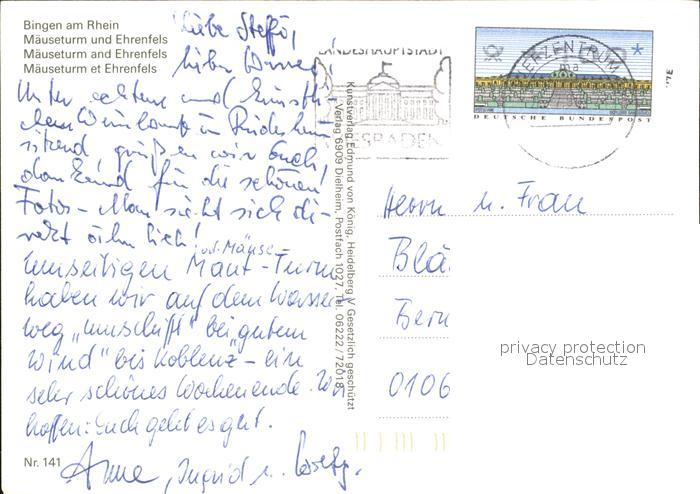 Bingen am Rhein
Mäuseturm und Ehrenfels
Mäuseturm and Ehrenfels
Mäuseturm et Ehrenfels
Liebe Steffi,
lieber Werner!
Unter echtem und künstli-
chem Weinlaub in Rüdesheim
sitzend, grüßen wir Euch!
dan für die schönen
Fotos - Man sieht sich di-
rekt ähnlich!
od. Mäuse-
Umseitigen Maut-Turm
haben wir auf dem Wasser
weg "umschifft" bei "gutem
Wind" bis Koblenz - ein
sehr schönes Wochenende. Wir
hoffen: Euch geht es gut.
Anne, Ingrid u.
Nr. 141
Kunstverlag Edmund von König, Heidelberg √ Gesetzlich geschützt
Verlag 6909 Dielheim, Postfach 1027, Tel. 06222 / 72018
LANDESHAUPTSTADT
WIESBADEN
DEUTSCHE BUNDESPOST
Herrn u. Frau
Blä
Bern
0106
privacy protection
Datenschutz